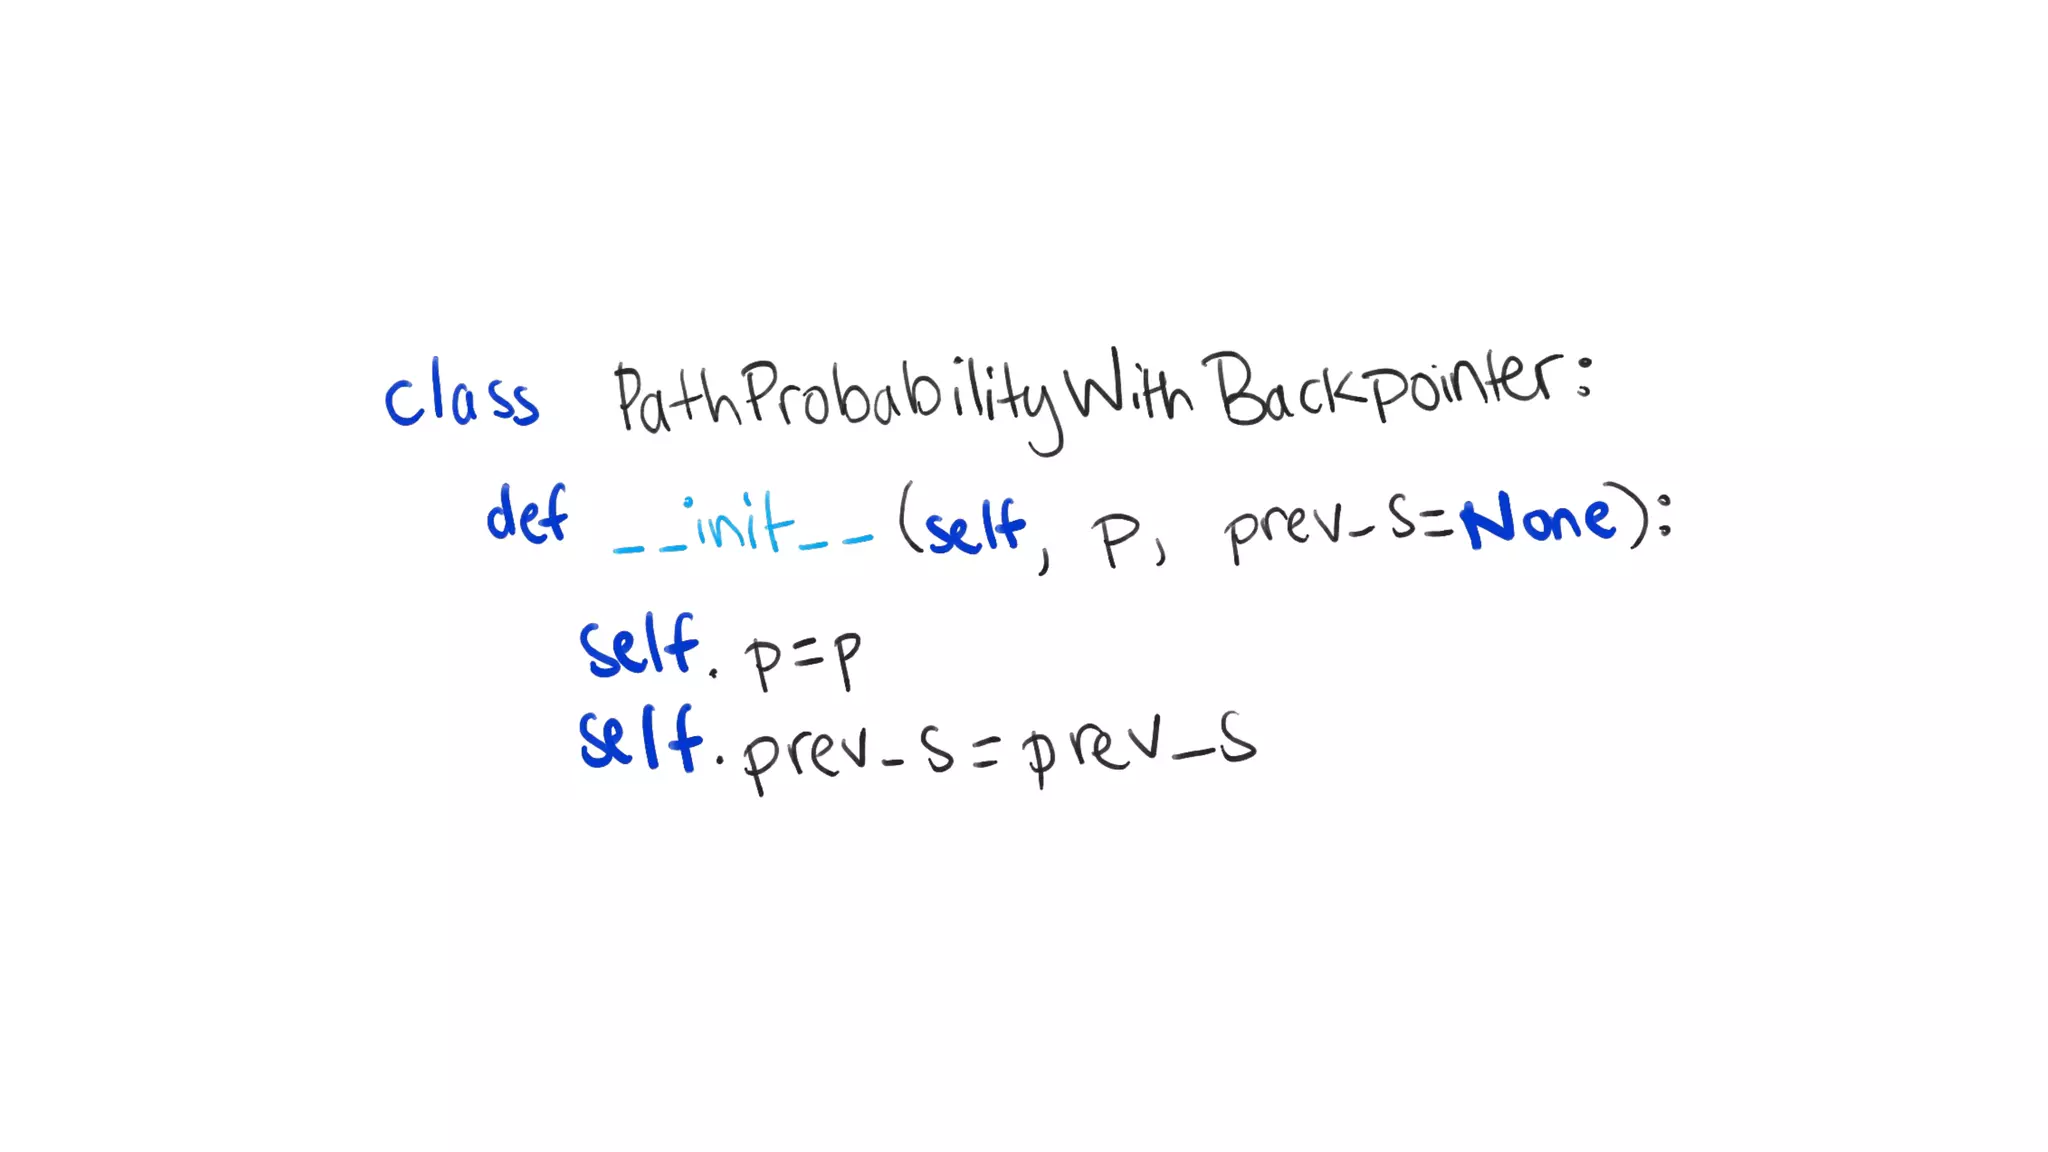 class PathProbabilityWithBackpointer:
def __init__(self, p, prev_s=None):
self.p=p
self.prev_s=prev_s